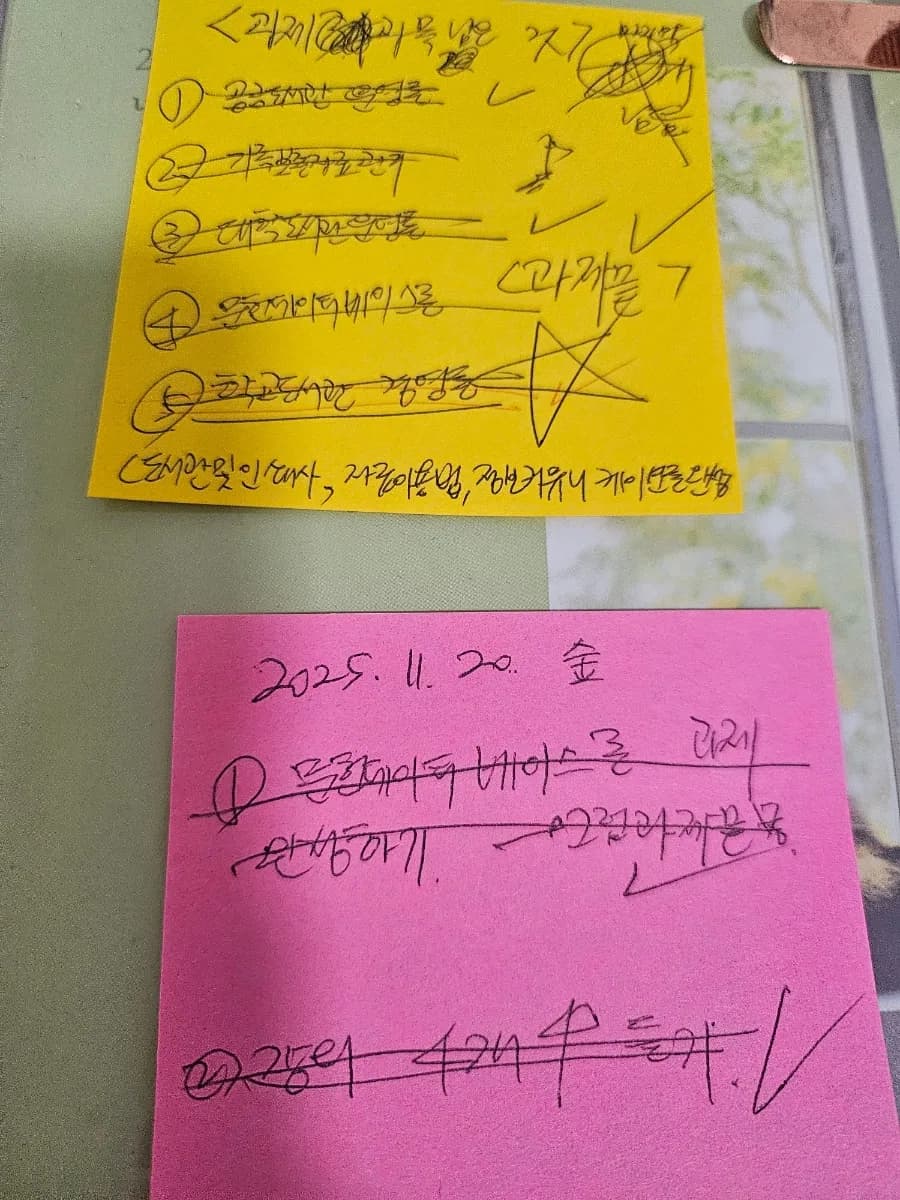 <과제 과목 남은 것>
① 공공도서관 운영론
② 기록보존자료관리
③ 대학도서관운영론
④ 문헌데이터베이스론
<과제물>
⑤ 학교도서관 경영론
(도서관및인쇄사, 자료이용법, 정보커뮤니케이션론
2025. 11. 20. 金
① 문헌데이터베이스론 과제
완성하기. 그럼과제끝
② 강의 4개 中 듣기.